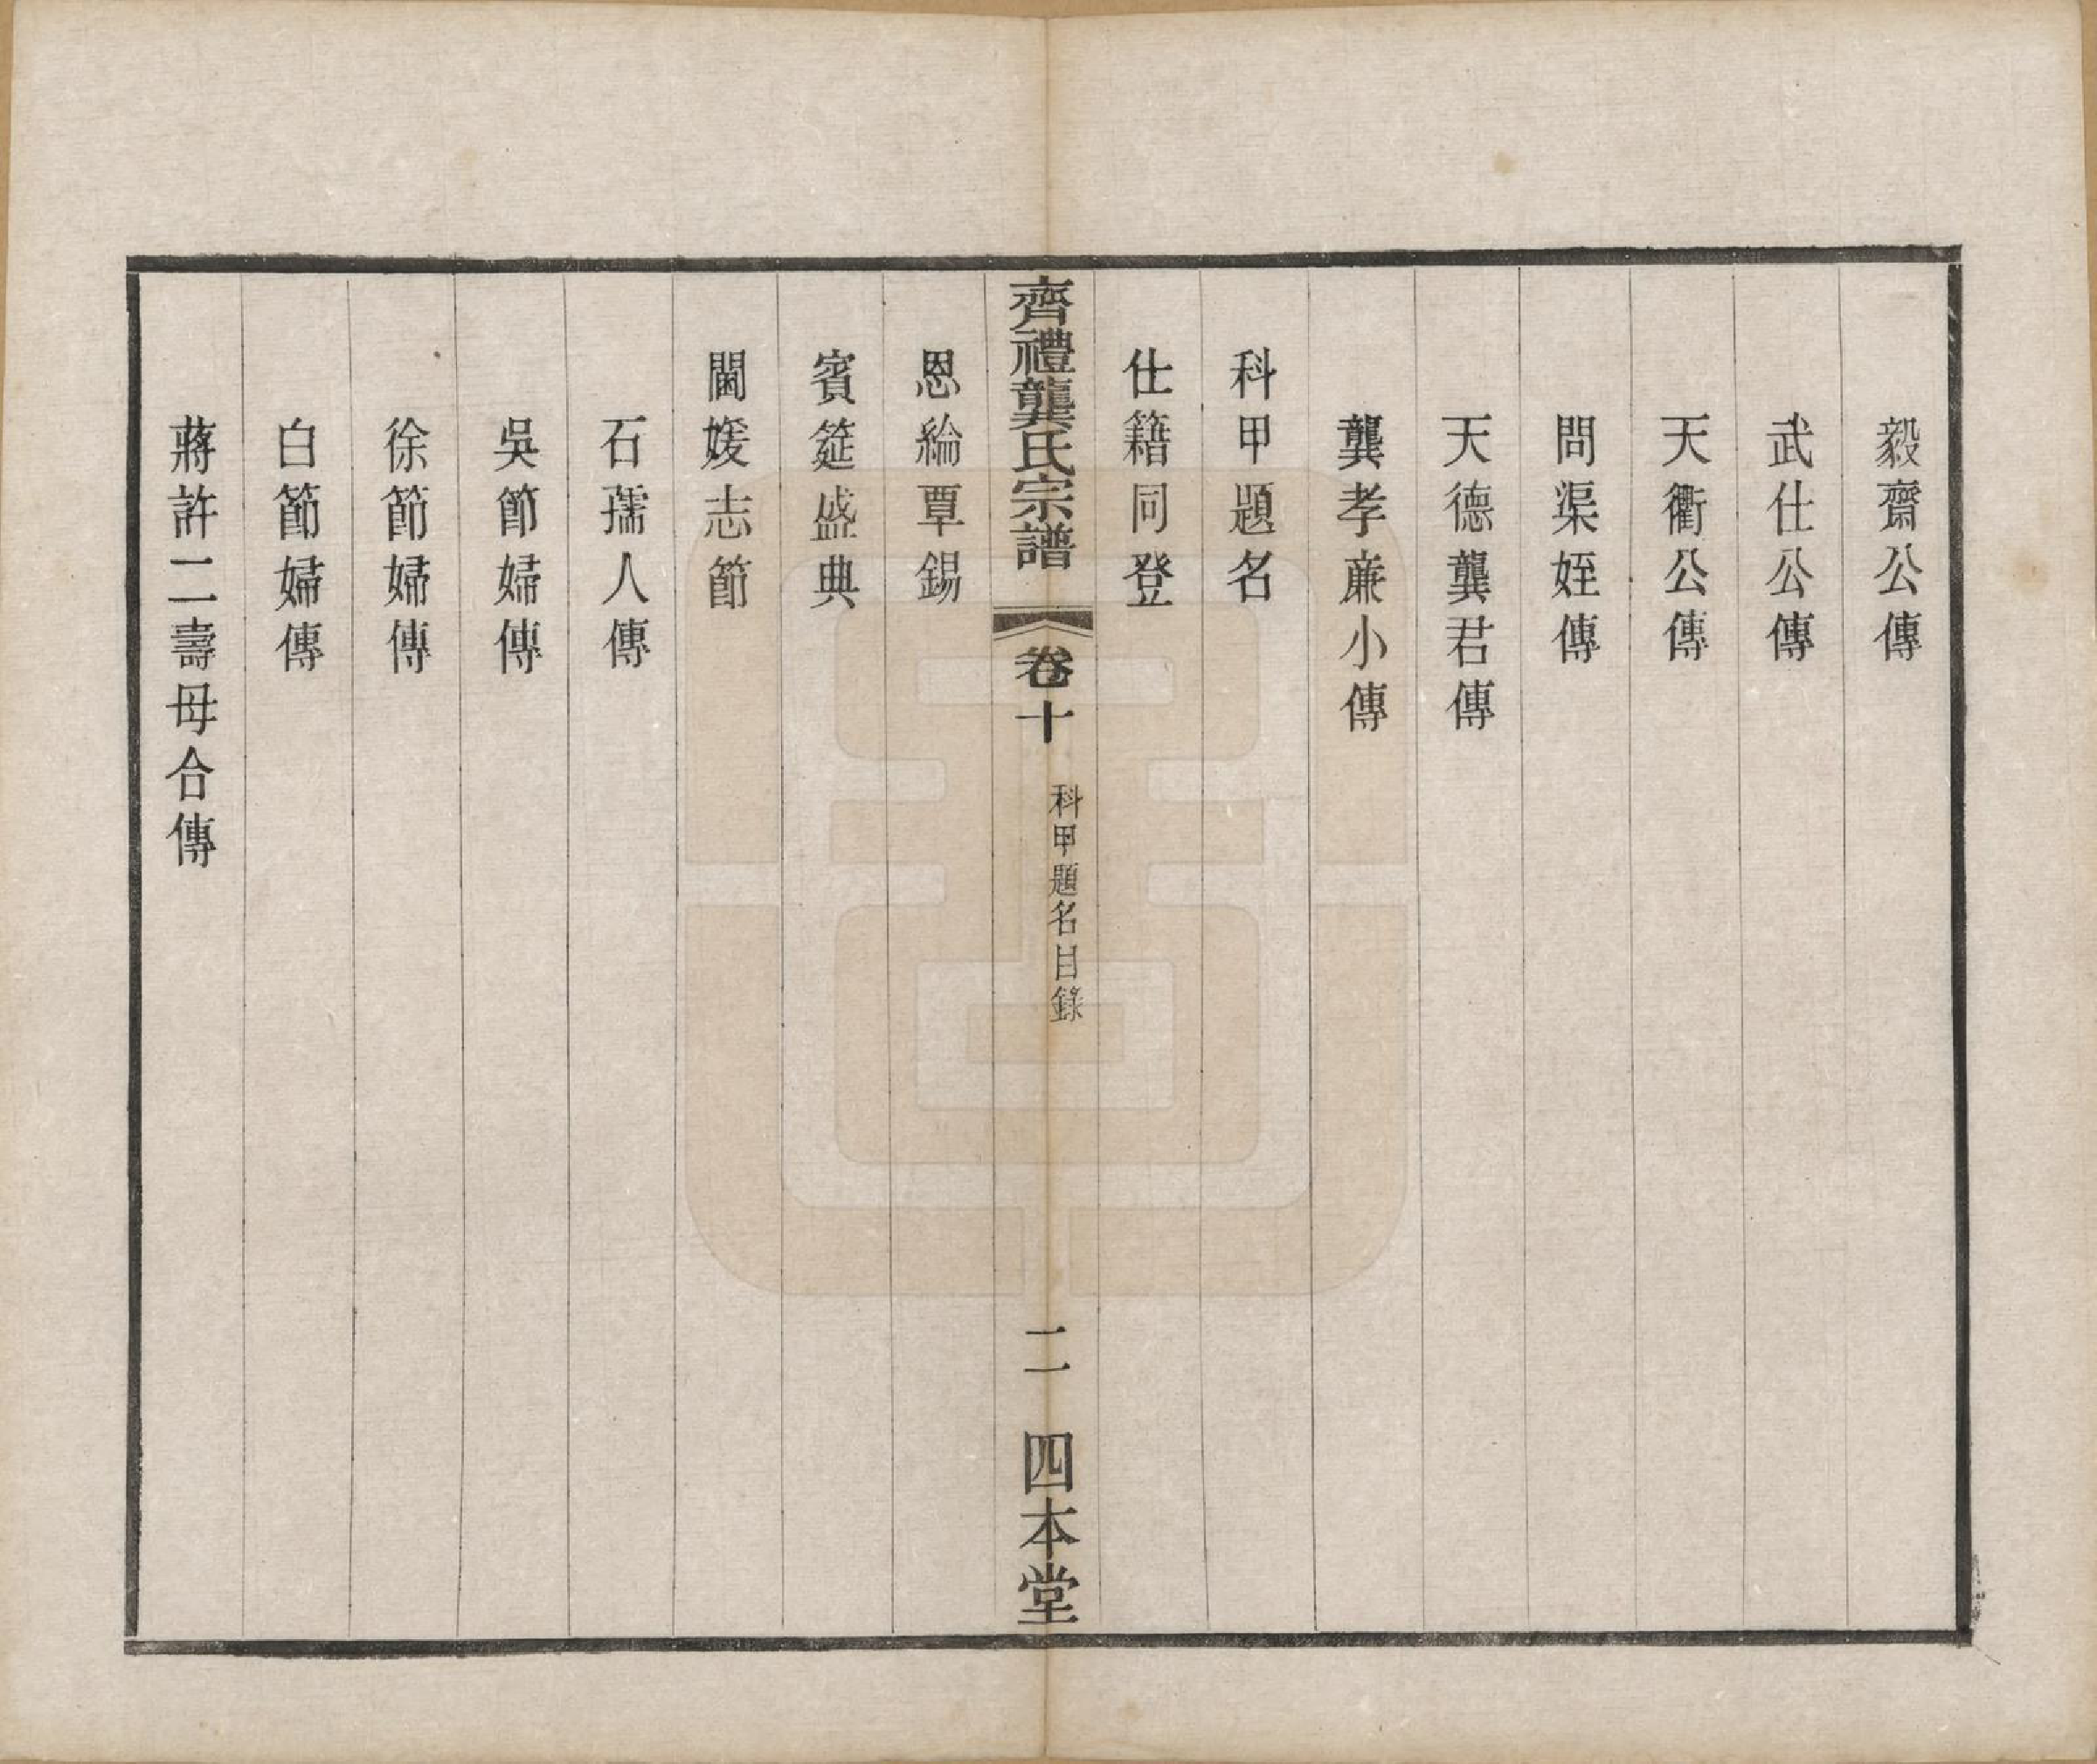 毅齋公傳
武仕公傳
天衢公傳
問渠姪傳
天德龔君傳
龔孝亷小傳
科甲題名
仕籍同登
齊禮龔氏宗譜 卷十 科甲題名目錄 二 四本堂
恩綸覃錫
賓筵盛典
閫媛志節
石孺人傳
吳節婦傳
徐節婦傳
白節婦傳
蔣許二壽母合傳